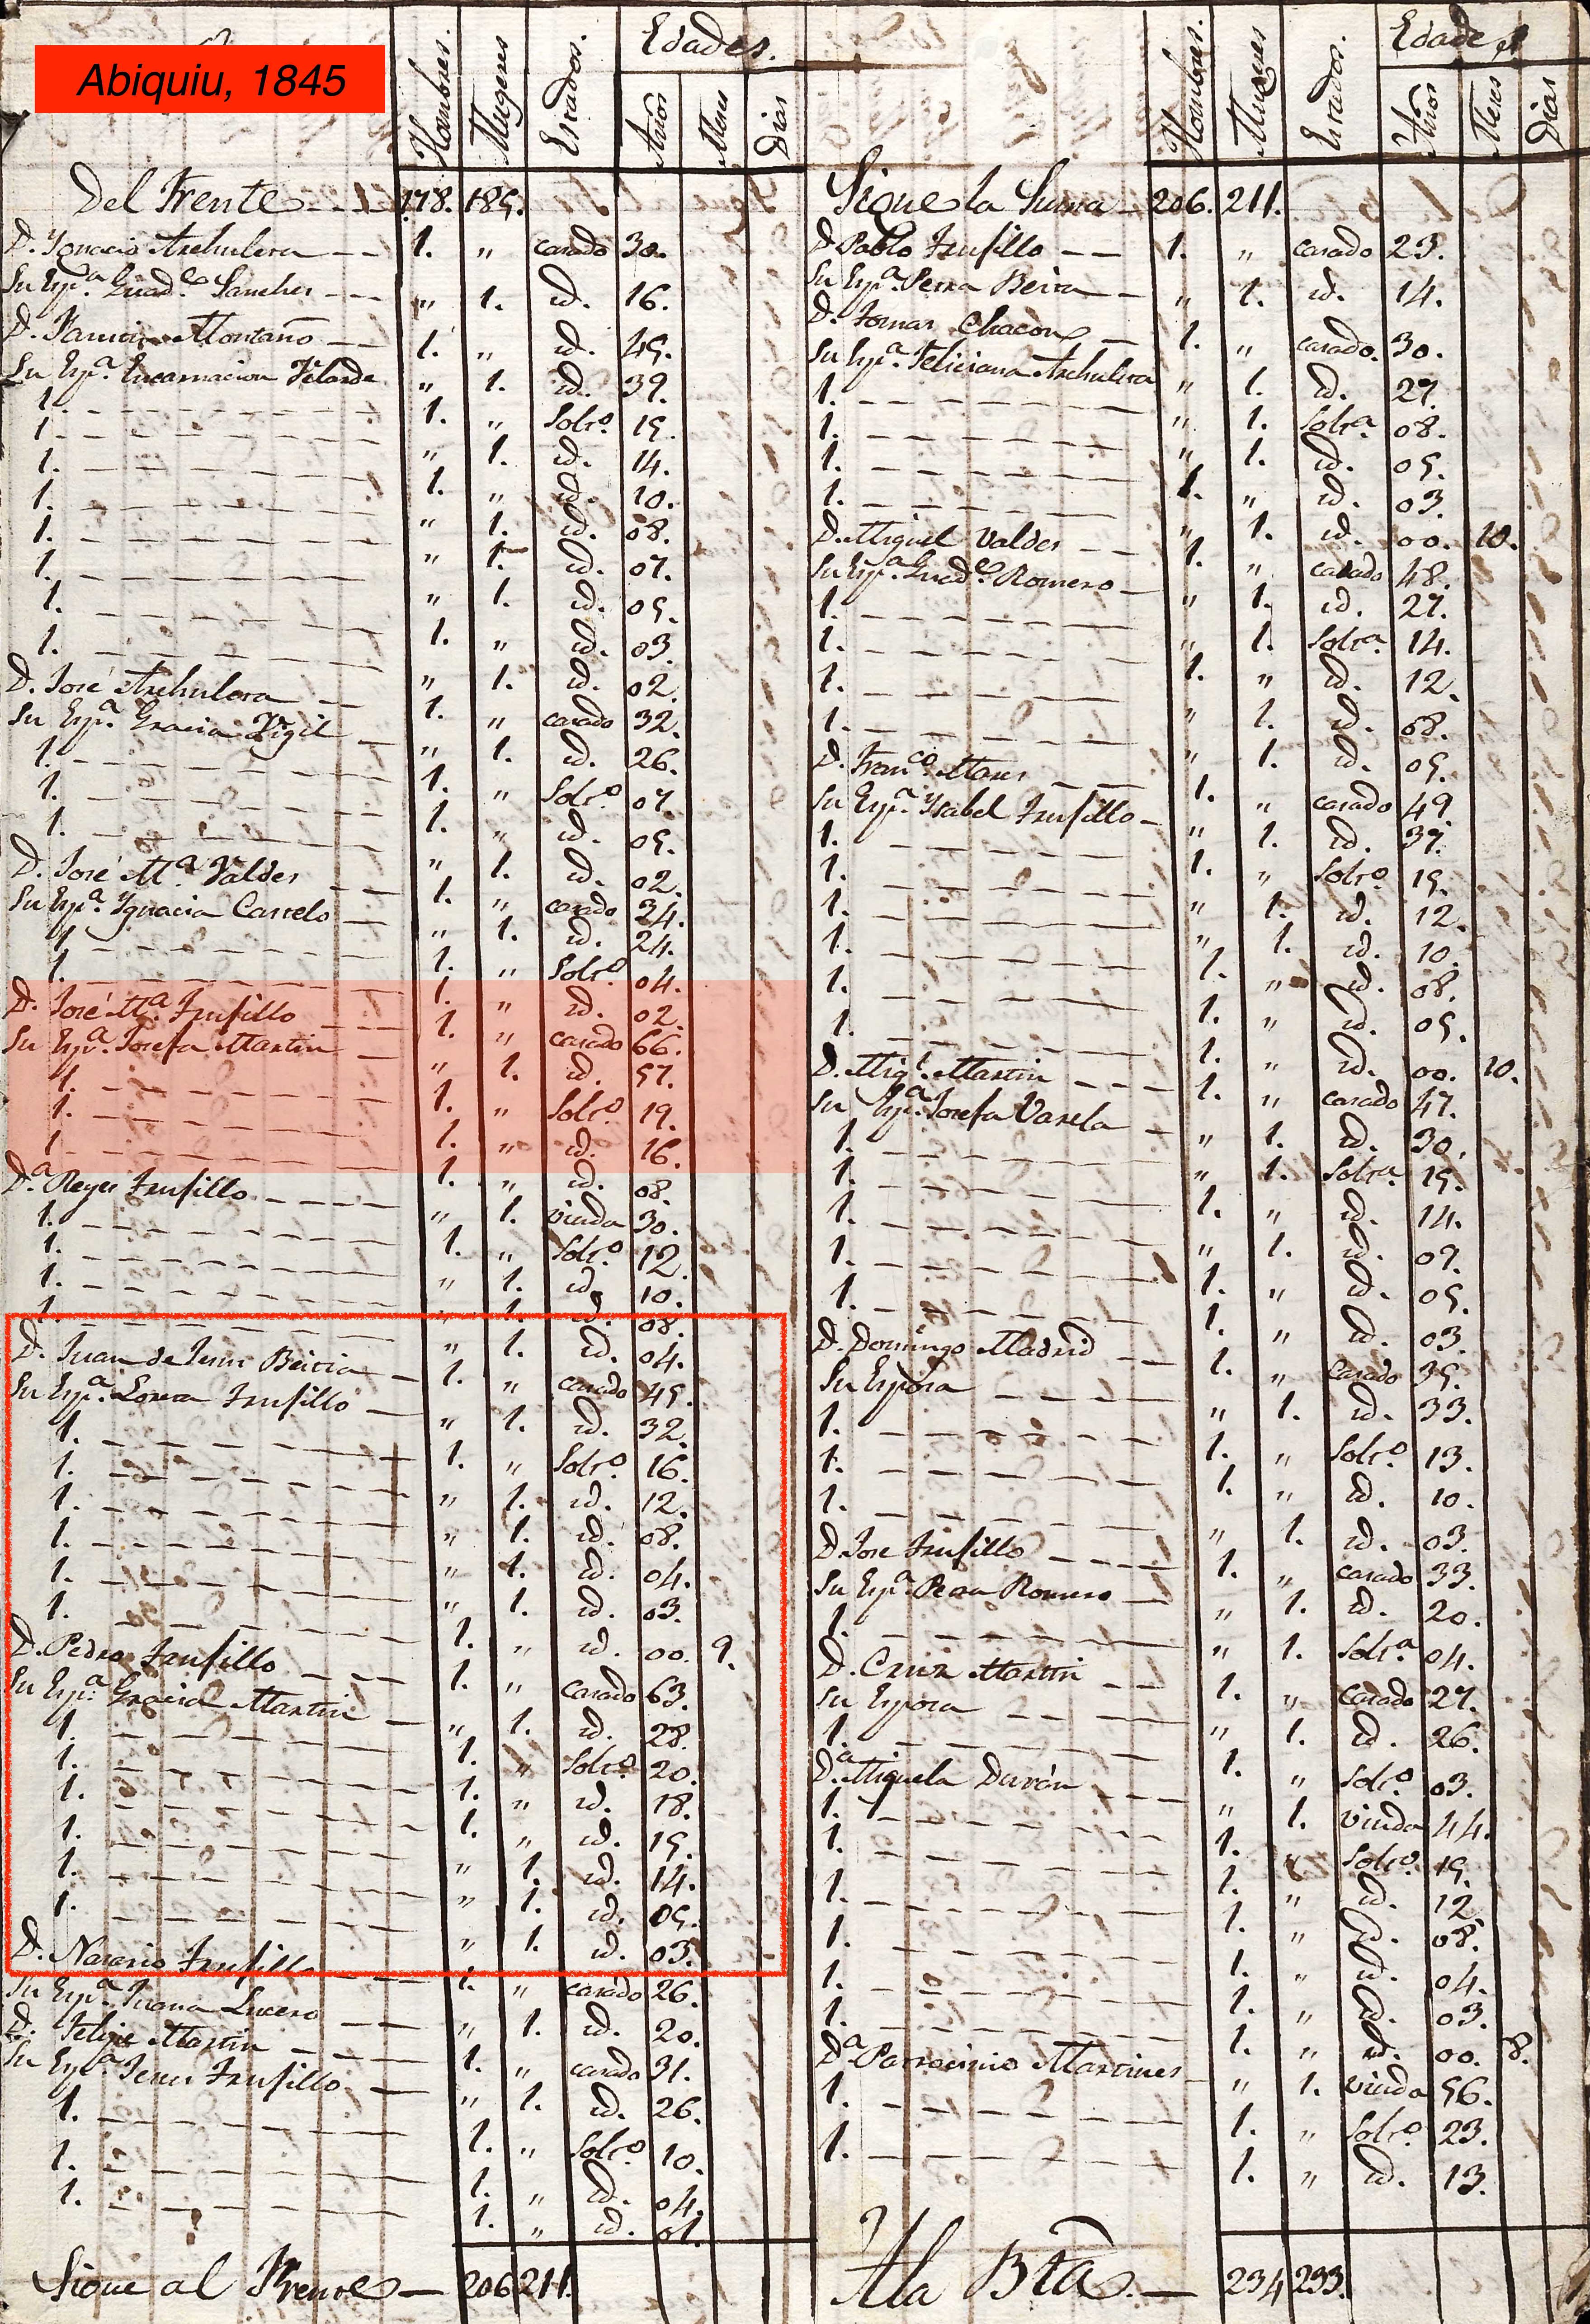 Abiquiu, 1845
Hombres. Mugeres Estados. Edades. Años Meses Dias
Del Frente 178. 185.
D. Ygnacio Archuleta 1. " casado 30.
Su Espª. Guadᵉ Sanches " 1. id. 16.
D. Patricio Montaño 1. " id. 45.
Su Espª. Encarnacion Velarde " 1. id. 39.
1. 1. " Soltº. 15.
1. " 1. id. 14.
1. 1. " id. 10.
1. " 1. id. 08.
1. " 1. id. 07.
1. " 1. id. 05.
1. 1. " id. 03.
1. " 1. id. 02.
D. José Archuleta 1. " casado 32.
Su Espª. Gracia Vigil " 1. id. 26.
1. 1. " Soltº 07.
1. 1. " id. 05.
1. " 1. id. 02.
D. José Mª Valdes 1. " casado 34.
Su Espª. Ygnacia Castelo " 1. id. 24.
1. 1. " Soltº 04.
1. 1. " id. 02.
D. José Mª. Trujillo 1. " casado 66.
Su Espª. Josefa Martin " 1. id. 57.
1. 1. " Soltº 19.
1. 1. " id. 16.
1 1. " id. 08.
Dª Reyes Trujillo " 1. viuda 30.
1. 1. " Soltº 12.
1. " 1. id. 10.
1. " 1. id. 08.
1. " 1. id. 04.
D. Juan de Jesus Beitia 1. " casado 45.
Su Espª. Trujillo " 1. id. 32.
1. 1. " Soltº. 16.
1. " 1. id. 12.
1. " 1. id. 08.
1. " 1. id. 04.
1. " 1. id. 03.
1. 1. " id. 00. 9.
D. Pedro Trujillo 1. " casado 63.
Su Espª. Gracia Martin " 1. id. 28.
1. 1. " Soltº. 20.
1. 1. " id. 18.
1. 1. " id. 15.
1. " 1. id. 14.
1. " 1. id. 05.
1. " 1. id. 03.
D. Nasario Trujillo 1. " casado 26.
Su Espª. Juana Lucero " 1. id. 20.
D. Felipe Martin 1. " casado 31.
Su Espª Jesus Trujillo " 1. id. 26.
1. 1. " Soltº. 10.
1. 1. " id. 04.
1. 1. " id. 01.
Sigue al Frente 206 211.
Hombres. Mugeres Estados. Edades Años Meses Dias
Sigue la Suma 206. 211.
D. Pablo Trujillo 1. " casado 23.
Su Espª. Perra Beitia " 1. id. 14.
D. Tomas Chacon 1. " casado. 30.
Su Espª. Feliciana Archuleta " 1. id. 27.
1. " 1. Soltª 08.
1. " 1. id. 05.
1. 1. " id. 03.
1. " 1. id. 00. 10.
D. Miguel Valdes 1. " casado 48.
Su Espª. Guadᵉ. Romero " 1. id. 27.
1. " 1. Soltª. 14.
1. 1. " id. 12.
1. " 1. id. 08.
1. " 1. id. 05.
D. Franᶜᵒ. Maes 1. " casado 49.
Su Espª. Ysabel Trujillo " 1. id. 37.
1. 1. " Soltº. 15.
1. " 1. id. 12.
1. " 1. id. 10.
1. 1. " id. 08.
1. 1. " id. 05.
1. 1. " id. 00. 10.
D. Migˡ. Martin 1. " casado 47.
Su Espª. Josefa Varela " 1. id. 30.
1. " 1. Soltª. 15.
1. 1. " id. 14.
1. " 1. id. 07.
1. 1. " id. 05.
1. 1. " id. 03.
D. Domingo Madrid 1. " casado 35.
Su Esposa " 1. id. 33.
1. 1. " Soltº 13.
1. 1. " id. 10.
1. " 1. id. 03.
D. Jose Trujillo 1. " casado 33.
Su Espª. Romero " 1. id. 20.
1. " 1. Soltª 04.
D. Cruz Martin 1. " casado 27.
Su Esposa " 1. id. 26.
1. 1. " Soltº 03.
Dª. Miguela Durán " 1. viuda 44.
1. 1. " Soltº. 15.
1. 1. " id. 12
1. 1. " id. 08.
1. 1. " id. 04.
1. 1. " id. 03.
1. 1. " id. 00. 8.
Dª Patrocinio Martines " 1. viuda 56.
1. 1. " Soltº. 23.
1. 1. " id. 13.
A la Bta. 234 233.